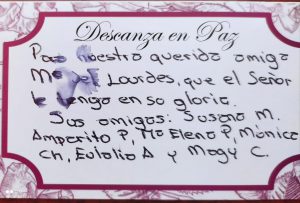 Descanza en Paz
Para nuestro querido amiga
Lourdes, que el Señor
le tenga en so gloria.
Sus amigos: Susana M.
Amparito P, Ma Elena P, Mónica
Ch, Eulalia A y Magy C.